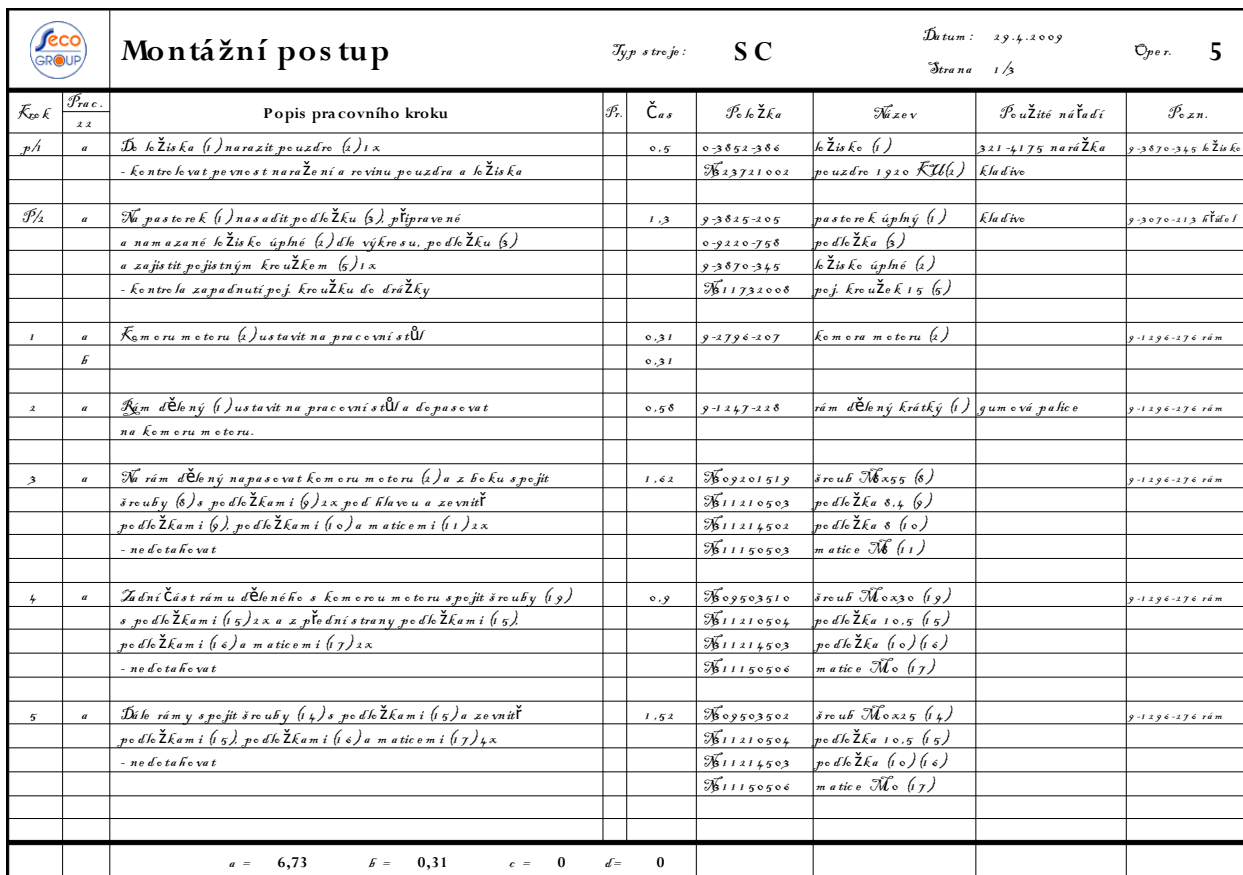 Seco GROUP
Montážní postup Typ stroje: SC Datum: 29.4.2009 Oper. 5
Strana 1/3
Krok Prac. 22 Popis pracovního kroku Pr. Čas Položka Název Použité nářadí Pozn.
p/1 a Do ložiska (1) narazit pouzdro (2) 1x 0,5 0-3852-386 ložisko (1) 321-4175 narážka 9-3870-345 ložisko
- kontrolovat pevnost naražení a rovinu pouzdra a ložiska N323721002 pouzdro 1920 KU(2) kladivo
P/2 a Na pastorek (1) nasadit podložku (3), připravené 1,3 9-3825-205 pastorek úplný (1) kladivo 9-3070-213 hřídel
a namazané ložisko úplné (2) dle výkresu, podložku (3) 0-9220-758 podložka (3)
a zajistit pojistným kroužkem (5) 1x 9-3870-345 ložisko úplné (2)
- kontrola zapadnutí poj. kroužku do drážky N311732008 poj. kroužek 15 (5)
1 a Komoru motoru (2) ustavit na pracovní stůl 0,31 9-2796-207 komora motoru (2) 9-1296-276 rám
b 0,31
2 a Rám dělený (1) ustavit na pracovní stůl a dopasovat 0,58 9-1247-228 rám dělený krátký (1) gumová palice 9-1296-276 rám
na komoru motoru.
3 a Na rám dělený napasovat komoru motoru (2) a z boku spojit 1,62 N309201519 šroub M8x55 (8) 9-1296-276 rám
šrouby (8) s podložkami (9) 2x pod hlavou a zevnitř N311210503 podložka 8,4 (9)
podložkami (9), podložkami (10) a maticemi (11) 2x N311214502 podložka 8 (10)
- nedotahovat N311150503 matice M8 (11)
4 a Zadní část rámu děleného s komorou motoru spojit šrouby (19) 0,9 N309503510 šroub M10x30 (19) 9-1296-276 rám
s podložkami (15) 2x a z přední strany podložkami (15), N311210504 podložka 10,5 (15)
podložkami (16) a maticemi (17) 2x N311214503 podložka (10) (16)
- nedotahovat N311150506 matice M10 (17)
5 a Dále rámy spojit šrouby (14) s podložkami (15) a zevnitř 1,52 N309503502 šroub M10x25 (14) 9-1296-276 rám
podložkami (15), podložkami (16) a maticemi (17) 4x N311210504 podložka 10,5 (15)
- nedotahovat N311214503 podložka (10) (16)
N311150506 matice M10 (17)
a = 6,73 b = 0,31 c = 0 d= 0